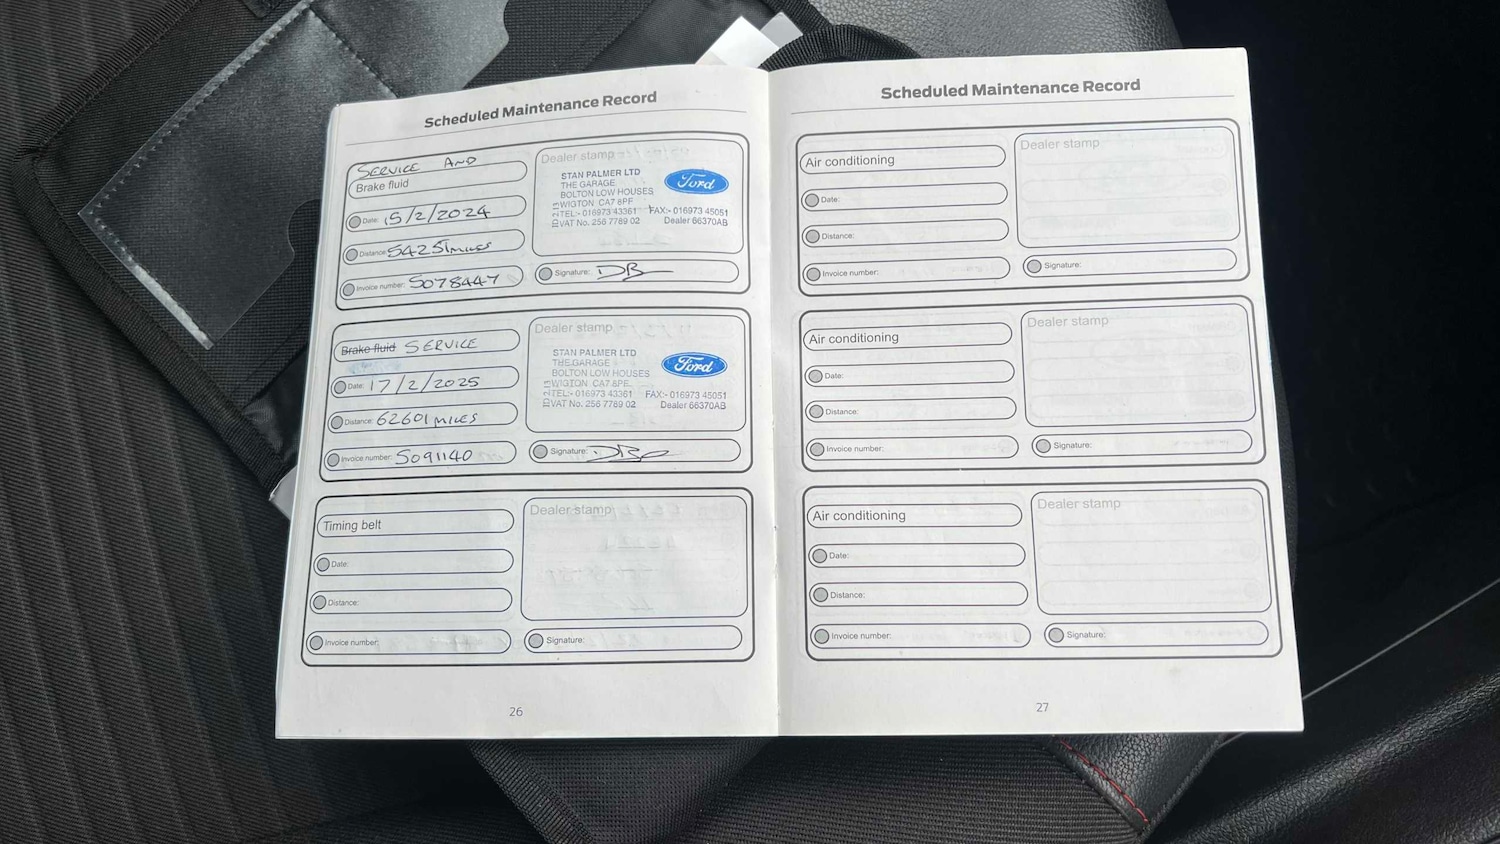 Scheduled Maintenance Record
SERVICE AND
Brake fluid
Date: 15/2/2024
Distance: 54251 MILES
Invoice number: 5078447
Dealer stamp
STAN PALMER LTD
THE GARAGE
BOLTON LOW HOUSES
WIGTON CA7 8PF
TEL:- 016973 43361 FAX:- 016973 45051
VAT No. 256 7789 02 Dealer 66370AB
Ford
Signature: DB
Brake fluid SERVICE
Date: 17/2/2025
Distance: 62601 MILES
Invoice number: 5091140
Dealer stamp
STAN PALMER LTD
THE GARAGE
BOLTON LOW HOUSES
WIGTON CA7 8PF
TEL:- 016973 43361 FAX:- 016973 45051
VAT No. 256 7789 02 Dealer 66370AB
Ford
Signature: DB
Timing belt
Date:
Distance:
Invoice number:
Dealer stamp
Signature:
26
Scheduled Maintenance Record
Air conditioning
Date:
Distance:
Invoice number:
Dealer stamp
Signature:
Air conditioning
Date:
Distance:
Invoice number:
Dealer stamp
Signature:
Air conditioning
Date:
Distance:
Invoice number:
Dealer stamp
Signature:
27